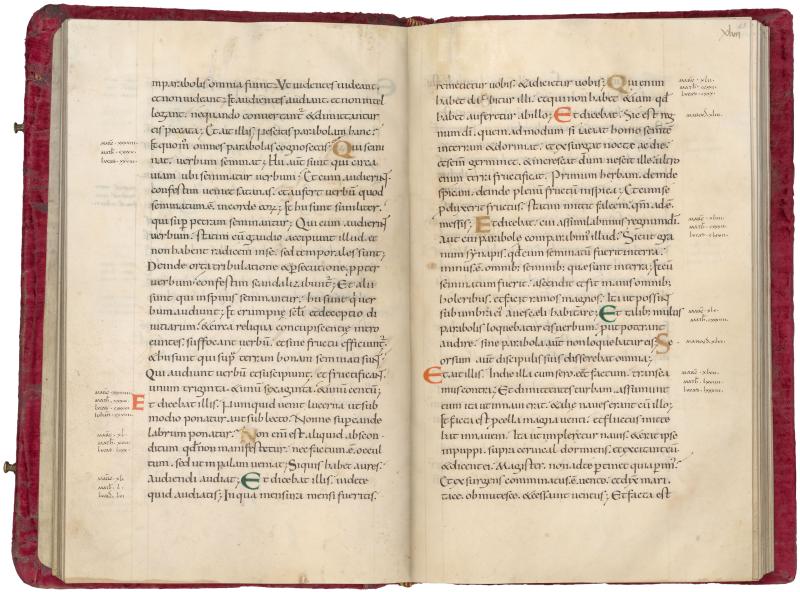 inparabolis omnia fiunt; Ut videntes videant,
et non videant; Et audientes audiant, et non intel
legant. nequando convertant & dimittantur
eis peccata; Et ait illis. Nescitis parabolam hanc.
Et quom omnes parabolas cognoscetis; Qui semi
nat. verbum seminat; Hi aut sunt qui circa
viam ubi seminatur verbum; Et cum audierint
confestim venit satanas. et aufert verbum quod
seminatum e in corde eor; Et hi sunt similiter.
qui sup petram seminantur; Qui cum audierint
verbum. statim cu gaudio accipiunt illud. et
non habent radicem in se. sed temporales sunt;
Deinde orta tribulatione & psecutione ppter
verbum confestim scandalizabunt; Et alii
sunt qui inspinis seminantur. hi sunt qui ver
bum audiunt; Et erumpne scli et deceptio di
vitiarum. & circa reliqua concupiscentie intro
euntes suffocant verbu. et sine fructu efficiunt;
& hi sunt qui sup terram bonam seminati sunt
Qui audiunt verbu et suscipiunt. et fructificant
unum triginta. & unu sexaginta. & unu centu;
Et dicebat illis. Numquid venit lucerna ut sub
modio ponatur. aut sub lecto. Nonne supcande
labrum ponatur. Non eni est aliquid abscon
ditum qd non manifestetur. nec factum e occul
tum. sed ut in palam veniat; Siquis habet aures
audiendi audiat; Et dicebat illis. videte
quid audiatis; In qua mensura mensi fueritis.
remetietur vobis. & adicietur vobis; Qui enim
habet dabitur illi. et qui non habet & iam qd
habet auferetur ab illo; Et dicebat. Sic est reg
num di. quem admodum si iactat homo semte
interram & dormiat. et exsurgat nocte ac die.
et semen germinet. & increscat dum nescit ille. ultro
enim terra fructificat. Primum herbam. deinde
spicam. deinde plenu fructu inspica; Et cum se
pduxerit fructus. statim mittit falcem. qm ade
messis; Et dicebat. cui assimilabimus regnum di.
Aut cui parabole comparabim illud. Sicut gra
num synapis. qd cum seminatu fuerit interra.
minus e omnib seminib; quae sunt interra; Et cu
seminatum fuerit. ascendit et fit maius omnib;
holeribus. et faciet ramos magnos. Ita ut possint
sub umbra ei aves celi habitare; Et talib; multis
parabolis loquebatur eis verbum. put poterant
audire. sine parabola aut non loquebatur eis; Se
orsum aut discipulis suis disserebat omnia;
Et ait illis. In die illa cum sero eet factum. transea
mus contra; Et dimittentes turbam. assumunt
eum ita ut in navi erat. & aliae naves erant cu illo;
Et facta est pcella magna venti. et fluctus mitte
bat in navem. Ita ut impleretur navis. & erat ipse
inpuppi. supra cervical dormiens. et excitant eu
& dicunt ei. Magister. non ad te ptinet quia perim;
Et exsurgens comminatus e vento. et dix mari.
tace. obmutesce. & cessavit ventus; Et facta est